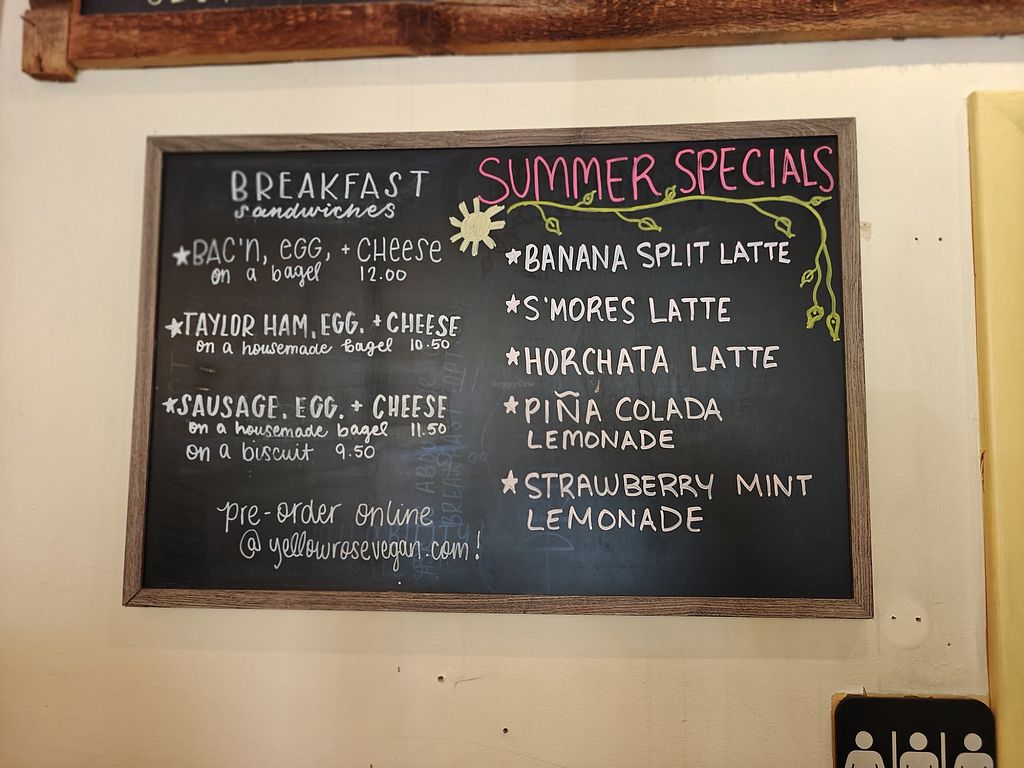 BREAKFAST
sandwiches
★BAC'N, EGG, + CHEESE
on a bagel 12.00
★TAYLOR HAM, EGG, + CHEESE
on a housemade bagel 10.50
★SAUSAGE, EGG, + CHEESE
on a housemade bagel 11.50
on a biscuit 9.50
pre-order online
@ yellowrosevegan.com!
SUMMER SPECIALS
★BANANA SPLIT LATTE
★S'MORES LATTE
★HORCHATA LATTE
★PIÑA COLADA
LEMONADE
★STRAWBERRY MINT
LEMONADE
HappyCow